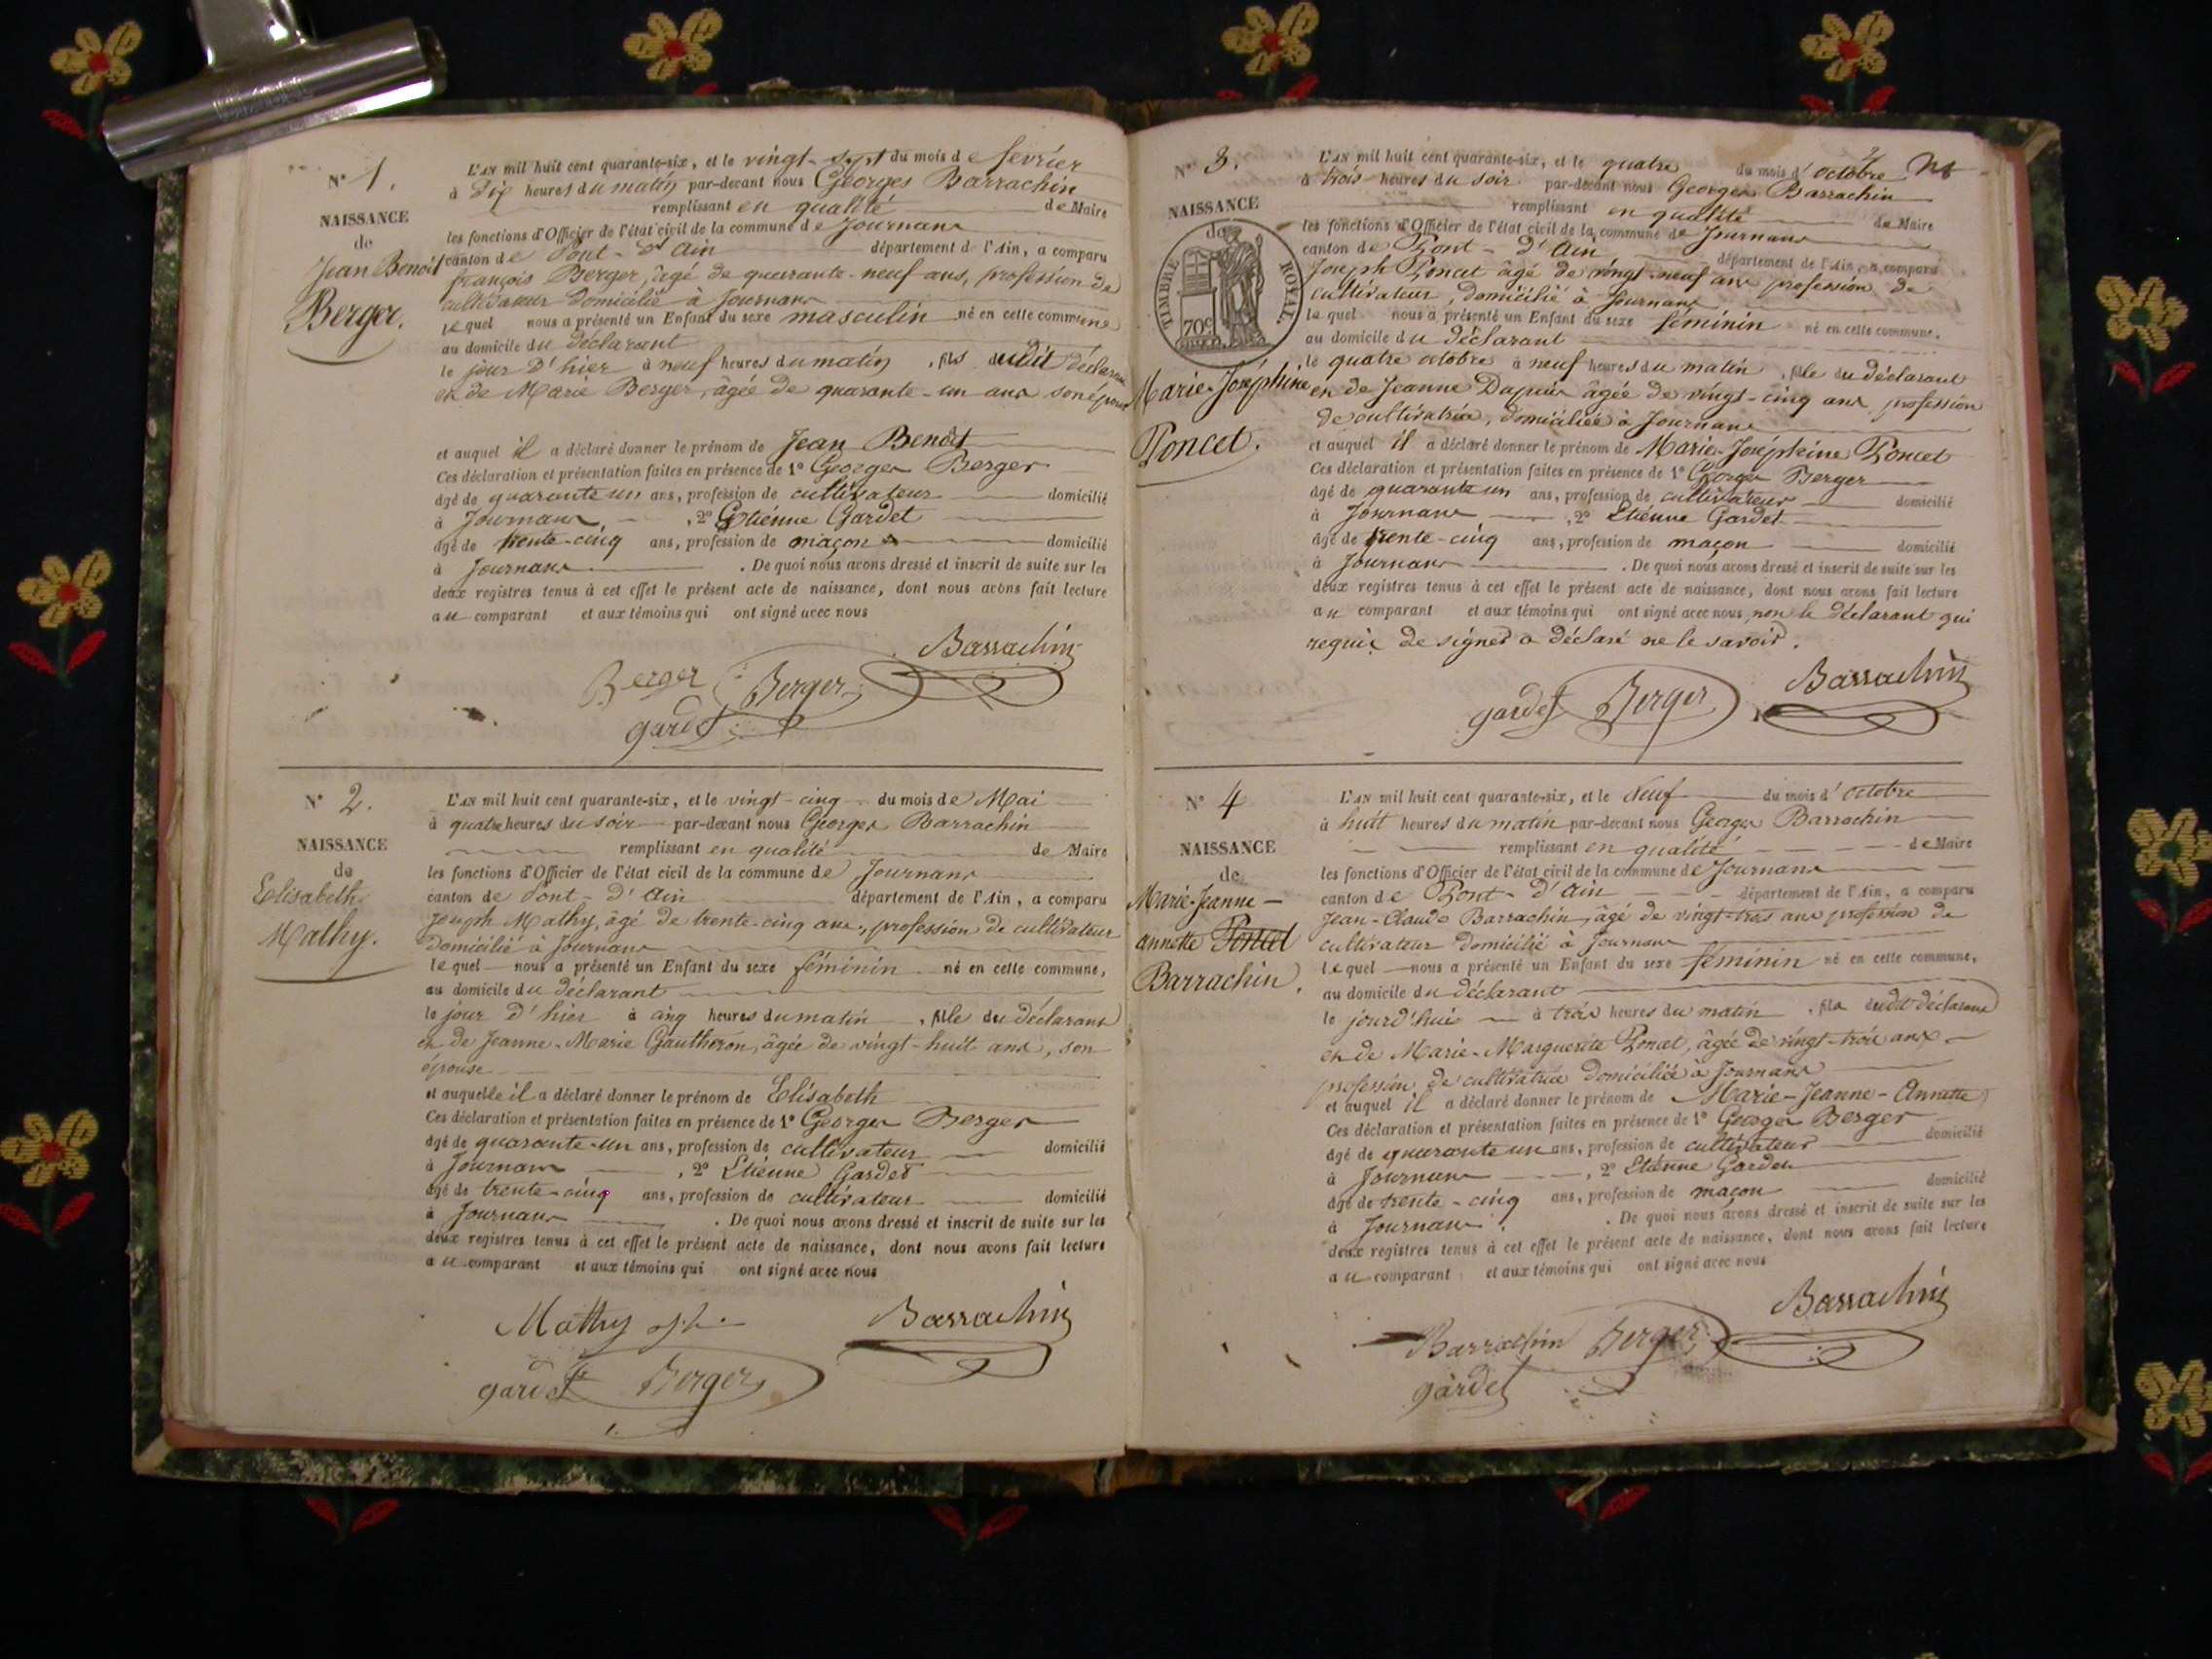 N° 1.
NAISSANCE
de
Jean Benoit
Berger.
L'AN mil huit cent quarante-six, et le vingt-sept du mois de fevrier
à dix heures du matin par-devant nous Georges Barrachin
remplissant en qualité de Maire
les fonctions d'Officier de l'état civil de la commune de Journans
canton de Pont-d'Ain département de l'Ain, a comparu
françois Berger, âgé de quarante-neuf ans, profession de
cultivateur domicilié à Journans
lequel nous a présenté un Enfant du sexe masculin né en cette commune
au domicile du déclarant
le jour d'hier à neuf heures du matin, fils dudit déclarant
et de Marie Berger, âgée de quarante-un ans son épouse
et auquel il a déclaré donner le prénom de Jean Benoit
Ces déclaration et présentation faites en présence de 1° Georges Berger
âgé de quarante un ans, profession de cultivateur domicilié
à Journans, 2° Etiénne Gardet
âgé de trente-cinq ans, profession de maçon domicilié
à Journans. De quoi nous avons dressé et inscrit de suite sur les
deux registres tenus à cet effet le présent acte de naissance, dont nous avons fait lecture
au comparant et aux témoins qui ont signé avec nous
Barrachin
Berger Berger
gardet
N° 2.
NAISSANCE
de
Elisabeth
Mathy.
L'AN mil huit cent quarante-six, et le vingt-cinq du mois de Mai
à quatre heures du soir par-devant nous Georges Barrachin
remplissant en qualité de Maire
les fonctions d'Officier de l'état civil de la commune de Journans
canton de Pont-d'Ain département de l'Ain, a comparu
Joseph Mathy, âgé de trente-cinq ans, profession de cultivateur
domicilié à Journans
lequel nous a présenté un Enfant du sexe féminin né en cette commune,
au domicile du déclarant
le jour d'hier à cinq heures du matin, fille du déclarant
et de Jeanne-Marie Gautheron, âgée de vingt-huit ans, son
épouse
et auquelle il a déclaré donner le prénom de Elisabeth
Ces déclaration et présentation faites en présence de 1° Georges Berger
âgé de quarante-un ans, profession de cultivateur domicilié
à Journans, 2° Etiénne Gardet
âgé de trente-cinq ans, profession de cultivateur domicilié
à Journans. De quoi nous avons dressé et inscrit de suite sur les
deux registres tenus à cet effet le présent acte de naissance, dont nous avons fait lecture
au comparant et aux témoins qui ont signé avec nous
Mathy Barrachin
gardet Berger
N° 3.
NAISSANCE
de
TIMBRE ROYAL.
70c
Marie-Joséphine
Poncet.
L'AN mil huit cent quarante-six, et le quatre du mois d'octobre
à trois heures du soir par-devant nous Georges Barrachin
remplissant en qualité de Maire
les fonctions d'Officier de l'état civil de la commune de Journans
canton de Pont-d'Ain département de l'Ain, a comparu
Joseph Poncet âgé de vingt-neuf ans profession de
cultivateur, domicilié à Journans
lequel nous a présenté un Enfant du sexe féminin né en cette commune.
au domicile du déclarant
le quatre octobre à neuf heures du matin, fille du déclarant
et de Jeanne Dupuis âgée de vingt-cinq ans profession
de cultivatrice, domiciliée à Journans
et auquel il a déclaré donner le prénom de Marie-Joséphine Poncet
Ces déclaration et présentation faites en présence de 1° Georges Berger
âgé de quarante un ans, profession de cultivateur domicilié
à Journans, 2° Etiénne Gardet
âgé de trente-cinq ans, profession de maçon domicilié
à Journans. De quoi nous avons dressé et inscrit de suite sur les
deux registres tenus à cet effet le présent acte de naissance, dont nous avons fait lecture
au comparant et aux témoins qui ont signé avec nous, non le déclarant qui
requis de signer a déclaré ne le savoir.
gardet Berger Barrachin
N° 4
NAISSANCE
de
Marie-Jeanne-
annette Poncet
Barrachin.
L'AN mil huit cent quarante-six, et le neuf du mois d'octobre
à huit heures du matin par-devant nous Georges Barrachin
remplissant en qualité de Maire
les fonctions d'Officier de l'état civil de la commune de Journans
canton de Pont-d'Ain département de l'Ain, a comparu
Jean-Claude Barrachin, âgé de vingt-trois ans profession de
cultivateur domicilié à Journans
lequel nous a présenté un Enfant du sexe féminin né en cette commune,
au domicile du déclarant
le jourd'hui à trois heures du matin, fille dudit déclarant
et de Marie-Marguerite Poncet, âgée de vingt-trois ans
profession de cultivatrice domiciliée à Journans
et auquel il a déclaré donner le prénom de Marie-Jeanne-Annette
Ces déclaration et présentation faites en présence de 1° Georges Berger
âgé de quarante un ans, profession de cultivateur domicilié
à Journans, 2° Etiénne Gardet
âgé de trente-cinq ans, profession de maçon domicilié
à Journans. De quoi nous avons dressé et inscrit de suite sur les
deux registres tenus à cet effet le présent acte de naissance, dont nous avons fait lecture
au comparant et aux témoins qui ont signé avec nous
Barrachin
Barrachin Berger
gardet